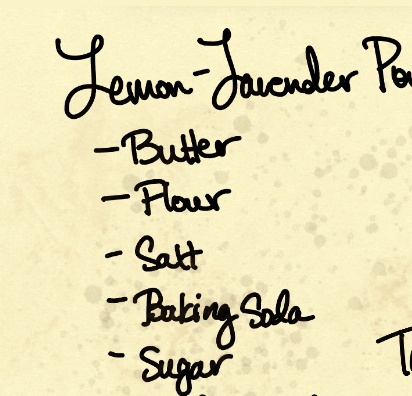 Lemon-Lavender
- Butter
- Flour
- Salt
- Baking Soda
- Sugar